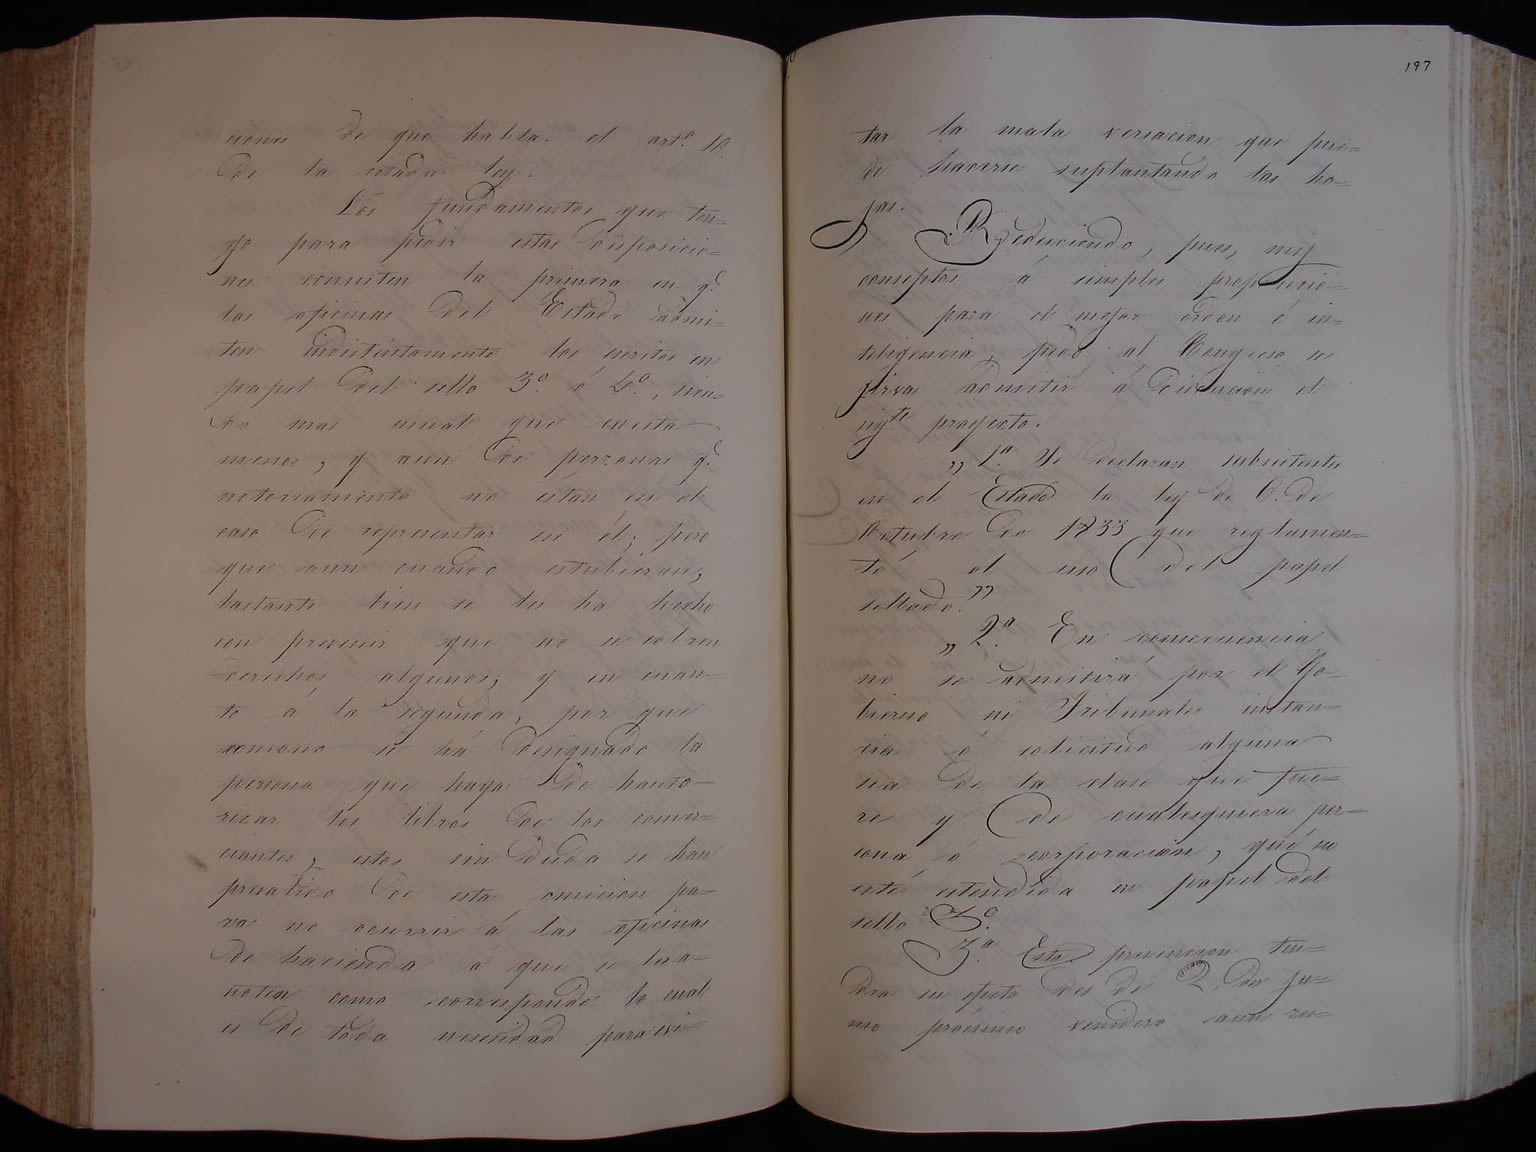 ciones de que habla el artº. 18.
de la citada ley.
Los fundamentos que ten=
go para pedir estas disposicio=
nes consisten la primera en q.e
las oficinas del Estado admi=
ten indistintamente los escritos en
papel del sello 3º ó 4º, sien=
do mas usual que cuesta
menos, y aun de personas q.e
notoriamente no están en el
caso de representar en él; pero
que aun cuando estubieran,
bastante bien se les ha hecho
con prevenir que no se cobren
derechos algunos; y en cuan=
to á la segunda, por que
como no se há designado la
persona que haya de hauto=
rizar los libros de los comer=
ciantes, estos sin duda se han
prevalido de esta omicion pa=
ra no ocurrir á las oficinas
de hacienda á que se les a=
noten como corresponde lo cual
es de toda necesidad para evi=
197
tar la mala versacion que pue=
de hacerse suplantando las ho=
jas.
Reduciendo, pues, mis
conseptos á simples proposicio=
nes para el mejor orden é in=
teligencia, pido al Congreso se
sirva admitir á discucion el
sigte proyecto.
„ 1.ª Se declaran subsistente
en el Estado la ley de 6. de
Octubre de 1833 que reglamen=
tó el uso del papel
sellado.”
„ 2.ª En consecuencia
no se admitirá por el Go=
bierno ni Tribunales instan=
cia ó solicitud alguna
sea de la clase que fue=
re y de cualesquiera per=
sona ó corporacion, que no
esté estendida en papel del
sello 3.º
3.ª Esta prevencion ten=
dra su efecto des de 2. de Ju=
nio prócsimo venidero aun